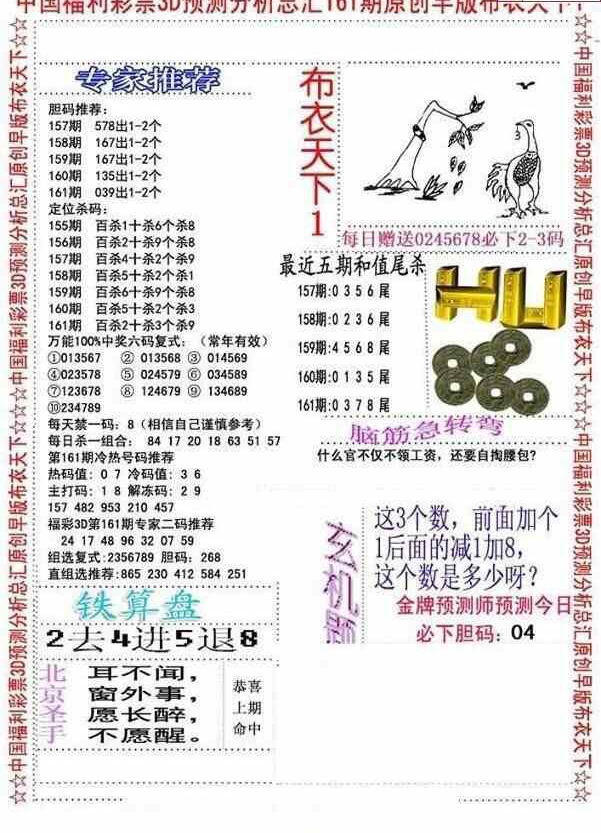 中国福利彩票3D预测分析总汇161期原创早版布衣天下1
☆☆中国福利彩票3D预测分析总汇原创早版布衣天下☆☆中国福利彩票3D预测分析总汇原创早版布衣天下☆☆
专家推荐
胆码推荐：
157期 578出1-2个
158期 167出1-2个
159期 167出1-2个
160期 135出1-2个
161期 039出1-2个
定位杀码：
155期 百杀1十杀6个杀8
156期 百杀2十杀9个杀8
157期 百杀4十杀2个杀1
158期 百杀5十杀2个杀1
159期 百杀6十杀9个杀8
160期 百杀5十杀2个杀3
161期 百杀2十杀3个杀9
万能100%中奖六码复式：（常年有效）
①013567 ② 013568 ③ 014569
④023578 ⑤ 024579 ⑥ 034589
⑦123678 ⑧ 124679 ⑨ 134689
⑩234789
每天禁一码：8（相信自己谨慎参考）
每日杀一组合： 84 17 20 18 63 51 57
第161期冷热号码推荐
热码值：0 7 冷码值：3 6
主打码：1 8 解冻码：2 9
157 482 953 210 457
福彩3D第161期专家二码推荐
24 17 48 96 32 07 59
组选复式:2356789 胆码：268
直组选推荐:865 230 412 584 251
铁算盘
2去4进5退8
北京圣手
耳不闻，
窗外事，
愿长醉，
不愿醒。
恭喜
上期
命中
布衣天下1
每日赠送0245678必下2-3码
最近五期和值尾杀
157期:0 3 5 6 尾
158期:0 2 3 6 尾
159期:4 5 6 8 尾
160期:0 1 3 5 尾
161期:0 3 7 8 尾
脑筋急转弯
什么官不仅不领工资，还要自掏腰包?
玄机题
这3个数，前面加个
1后面的减1加8，
这个数是多少呀?
金牌预测师预测今日
必下胆码：04
☆☆中国福利彩票3D预测分析总汇原创早版布衣天下☆☆☆中国福利彩票3D预测分析总汇原创早版布衣天下☆☆